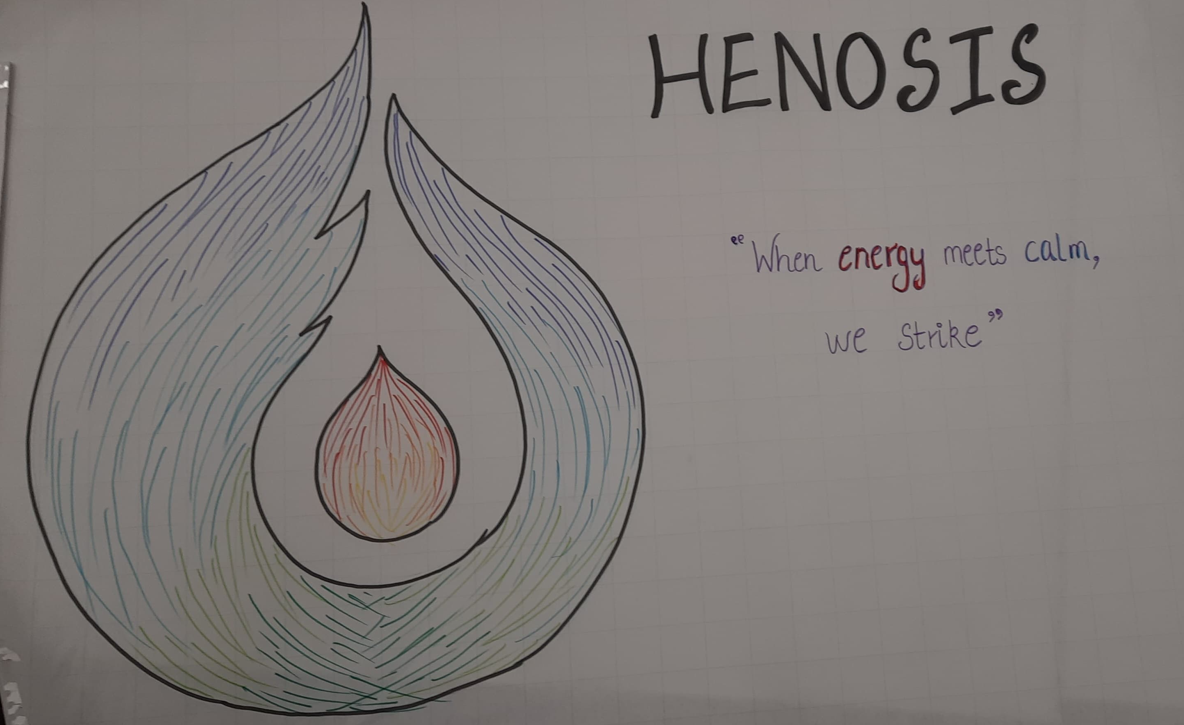 HENOSIS
"When energy meets calm,
we strike"